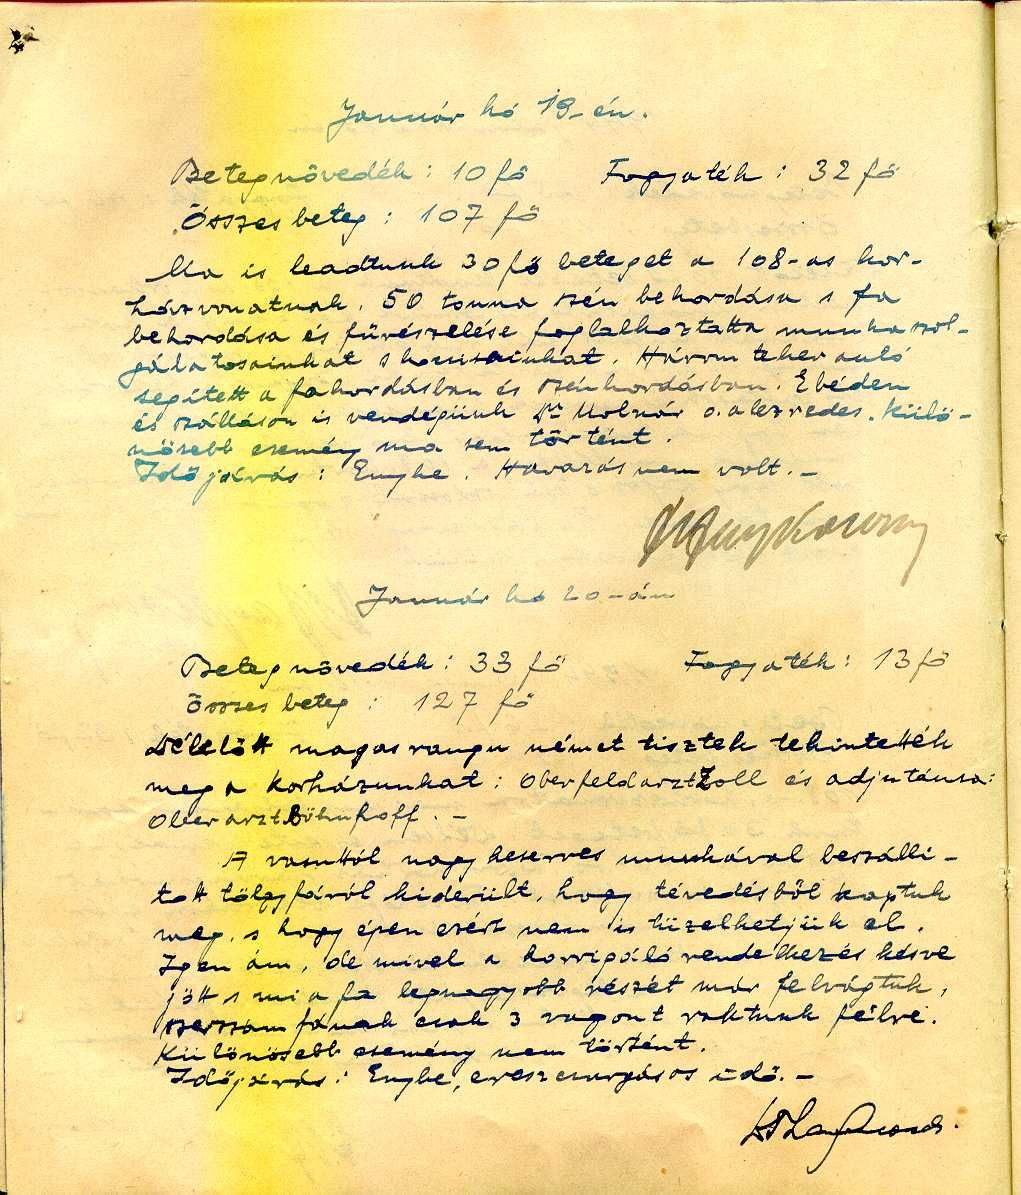 Január hó 19-én.
Betegnövedék: 10 fő Fogyaték: 32 fő
Összes beteg: 107 fő
Ma is leadtunk 30 fő beteget a 108-as kor-
házvonatnak. 50 tonna szén behordása s fa
behordása és fűrészelése foglalkoztatta munkaszol-
gálatosainkat s honvédeinket. Három teherautó
segített a fahordásban és szénhordásban. Ebéden
és szálláson is vendégünk Dr Molnár o. alezredes. Külö-
nösebb esemény ma sem történt.
Időjárás: Enyhe. Havazás nem volt. -
Január hó 20-án
Betegnövedék: 33 fő Fogyaték: 13 fő
Összes beteg: 127 fő
Délelőtt magasrangu német tisztek tekintették
meg a korházunkat: Oberfeldarzt Zoll és adjutánsa:
Oberarzt Böhnhoff. -
A vasuttól nagy keserves munkával beszálli-
tott tölgyfáról kiderült, hogy tévedésből kaptuk
meg, s hogy épen ezért nem is tüzelhetjük el.
Igen ám, de mivel a korrigáló rendelkezés késve
jött s mi a fa legnagyobb részét már felvágtuk,
szerszámfának csak 3 vagont raktunk félre.
Különösebb esemény nem történt.
Időjárás: Enyhe, ereszcsurgásos idő. -